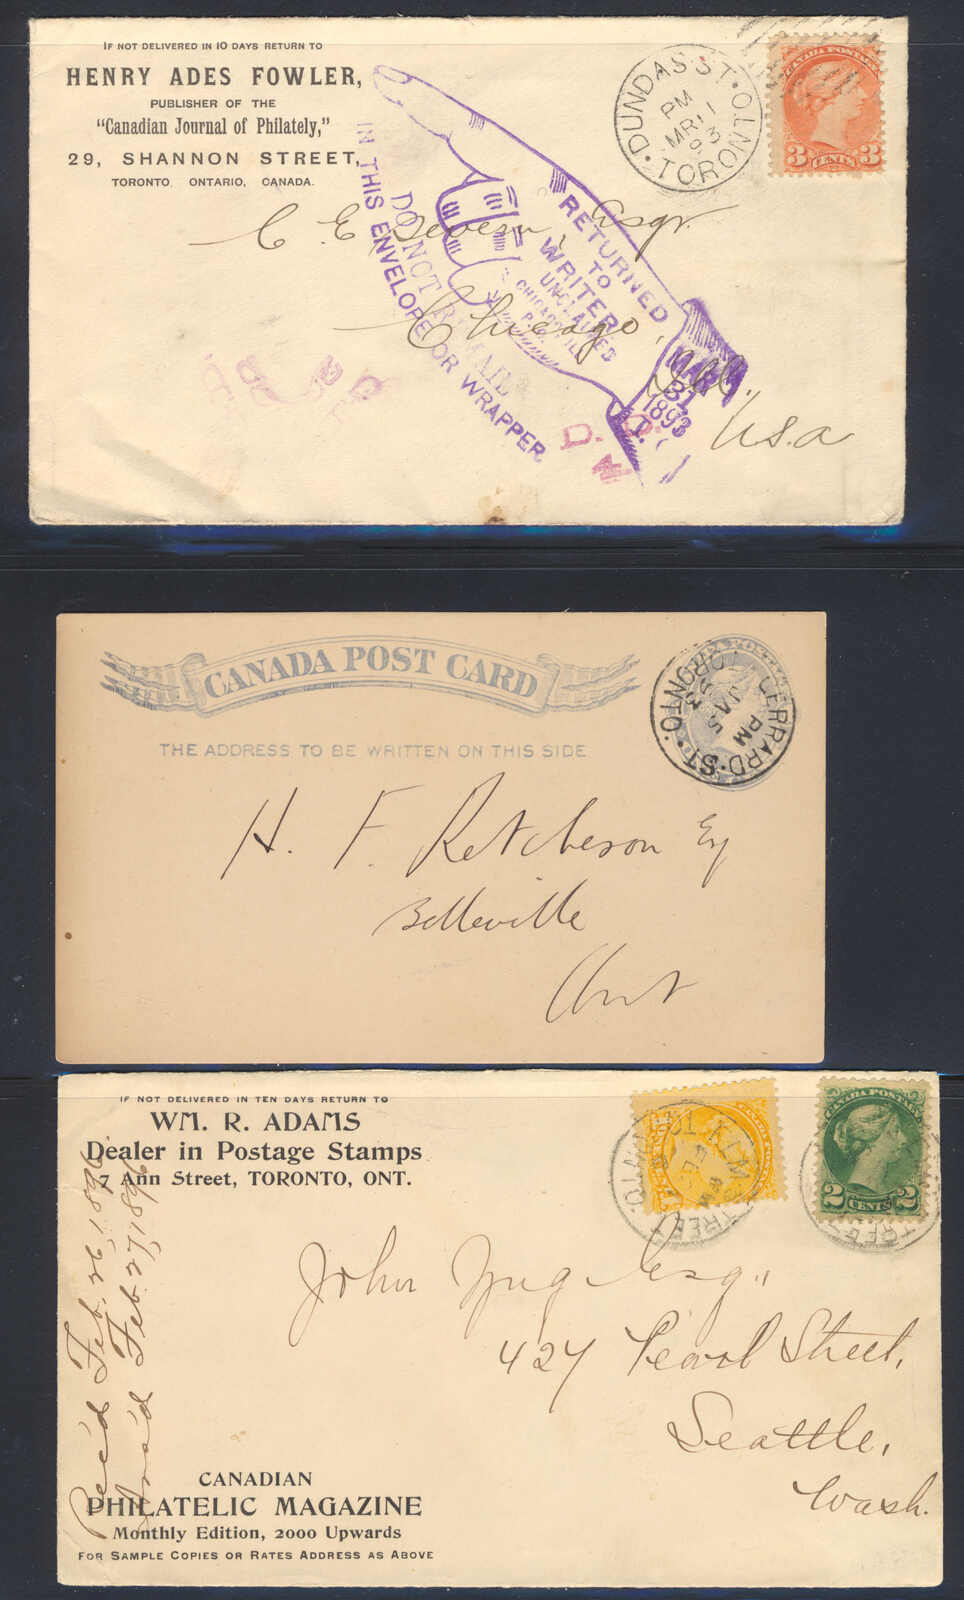 IF NOT DELIVERED IN 10 DAYS RETURN TO
HENRY ADES FOWLER,
PUBLISHER OF THE
"Canadian Journal of Philately,"
29, SHANNON STREET,
TORONTO, ONTARIO, CANADA.
DUNDAS ST. TORONTO
PM
MR 11
93
CANADA POSTAGE
3 CENTS 3
C. E. Esqr.
Chicago, Ill.,
U.S.a
RETURNED
TO
WRITER
UNCLAIMED
CHICAGO, ILL.
P.O.
MAR
31
1893
DO NOT REMAIL
IN THIS ENVELOPE OR WRAPPER.
CANADA POST CARD
THE ADDRESS TO BE WRITTEN ON THIS SIDE
GERRARD. ST. TORONTO.
PM
JA 5
93
H. F. Ketcheson Esq
Belleville
Ont
IF NOT DELIVERED IN TEN DAYS RETURN TO
WM. R. ADAMS
Dealer in Postage Stamps
7 Ann Street, TORONTO, ONT.
Rec'd Feb. 26, 1896
Ans'd Feb. 27, 1896
CANADA POSTAGE
2 CENTS 2
STREET
John Esq.,
427 Pearl Street,
Seattle,
Wash.
CANADIAN
PHILATELIC MAGAZINE
Monthly Edition, 2000 Upwards
FOR SAMPLE COPIES OR RATES ADDRESS AS ABOVE